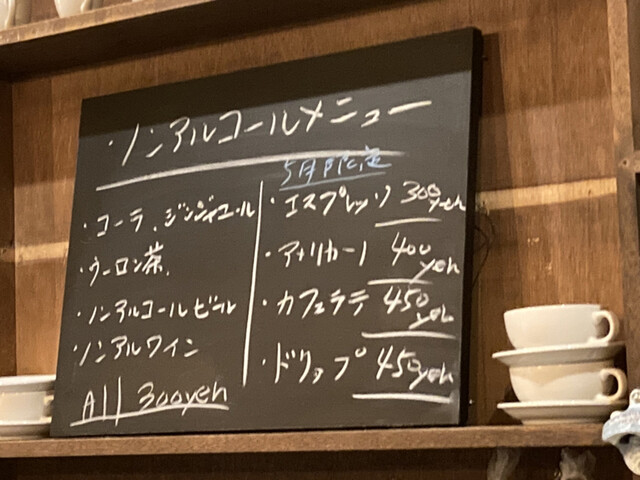 ノンアルコールメニュー
・コーラ、ジンジャエール
・ウーロン茶、
・ノンアルコールビール
ノンアルワイン
All 300yen
5月限定
・エスプレッソ 300yen
・アメリカーノ 400yen
・カフェラテ 450yen
・ドリップ 450yen